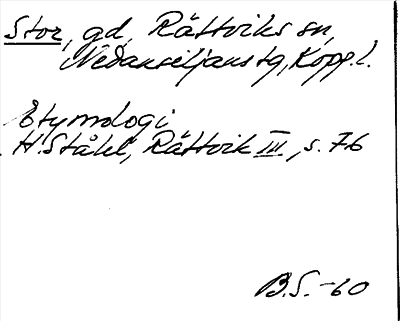 Stor, gd, Rättviks sn,
Nedansiljans tg, Kopp.l.
Etymologi
H. Ståhl, Rättvik III, s. 76
B.S. -60